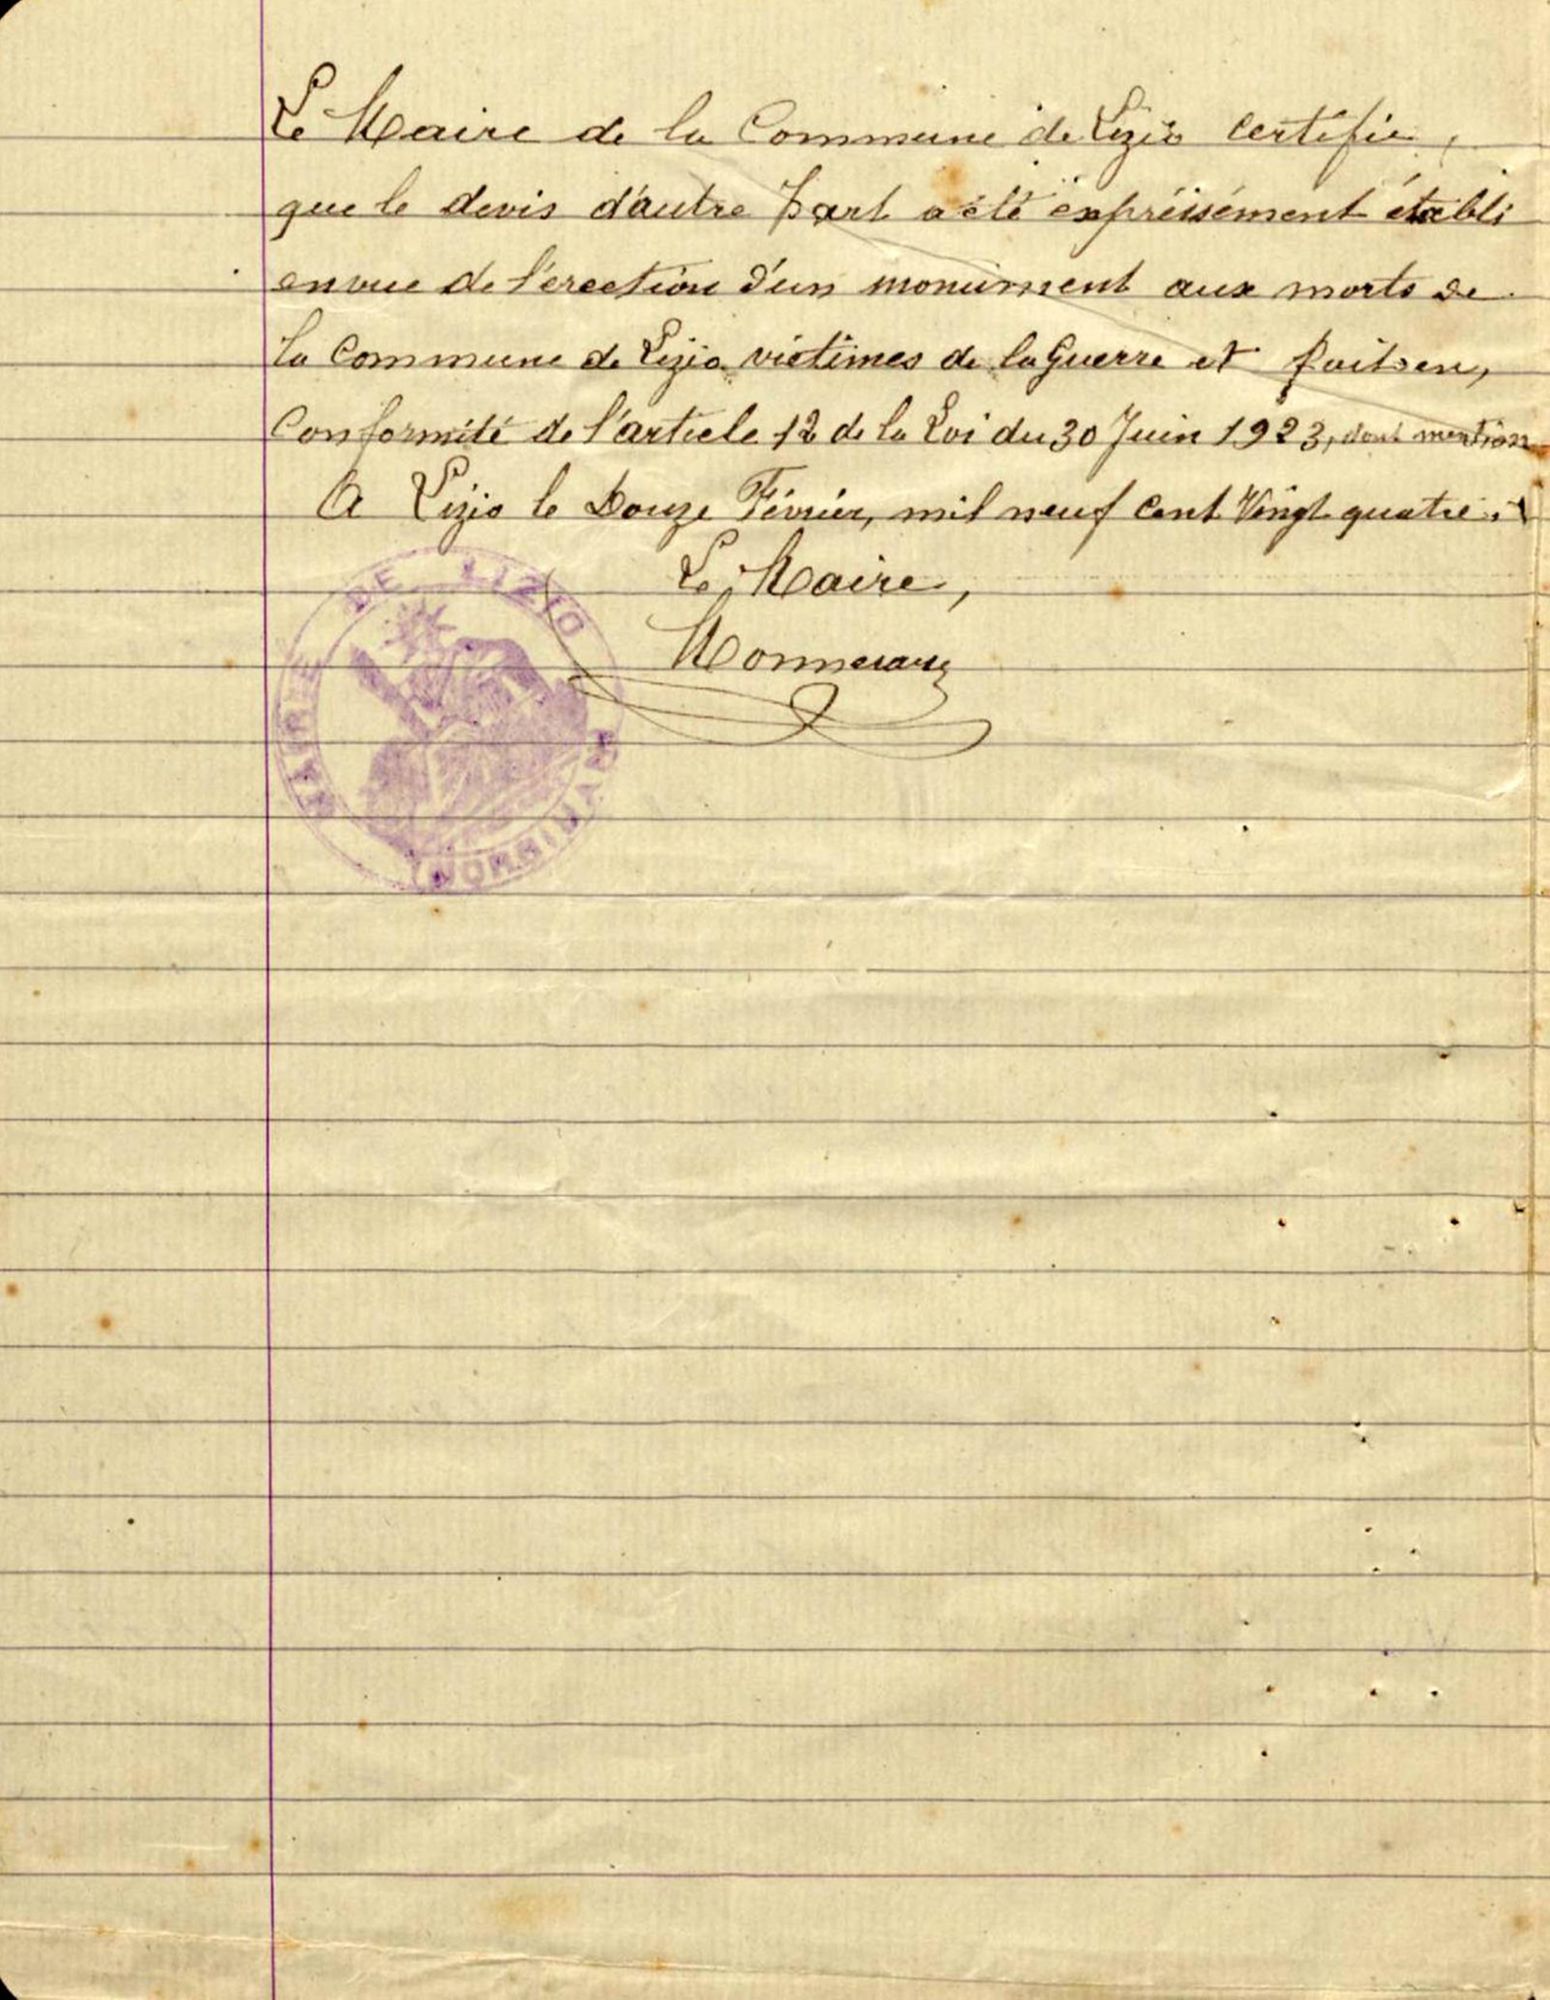 Le Maire de la Commune de Lizio certifie,
que le devis d'autre part a été expréssément établi
en vue de l'érection d'un monument aux morts de
la Commune de Lizio victimes de la Guerre et fait en,
Conformité de l'article 12 de la Loi du 30 Juin 1923, dont mention
A Lizio le Douze Février, mil neuf cent Vingt quatre.
Le Maire,
MAIRIE DE LIZIO
MORBIHAN